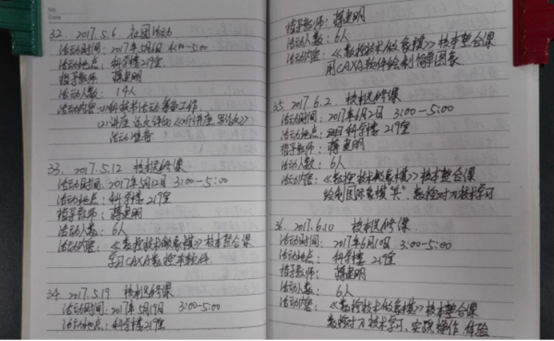 32. 2017.5.6. 社团活动
活动时间: 2017年5月6日 4:00-5:00
活动地点: 科学楼219室
指导教师: 蒋建明
活动人数: 14人
活动内容: (1)科技书活动筹备工作
(2)讲座 论文评比
活动准备
33. 2017.5.12 校本选修课
活动时间: 2017年5月12日 3:00-5:00
活动地点: 科学楼219室
指导教师: 蒋建明
活动人数: 6人
活动内容: 《数控技术的车模》校本整合课
学习CAXA数控车软件
34. 2017.5.19 校本选修课
活动时间: 2017年5月19日 3:00-5:00
活动地点: 科学楼219室
指导教师: 蒋建明
活动人数: 6人
活动内容: 《数控技术的车模》校本整合课
用CAXA软件绘制简单图表
35. 2017.6.2. 校本选修课
活动时间: 2017年6月2日 3:00-5:00
活动地点: 科学楼219室
指导教师: 蒋建明
活动人数: 6人
活动内容: 《数控技术的车模》校本整合课
绘制国际象棋“兵” 数控对刀技术学习
36. 2017.6.10 校本选修课.
活动时间: 2017年6月10日 3:00-5:00
活动地点: 科学楼219室
指导教师: 蒋建明
活动人数: 6人
活动内容: 《数控技术的车模》校本整合课
数控对刀技术学习、实践操作、体验